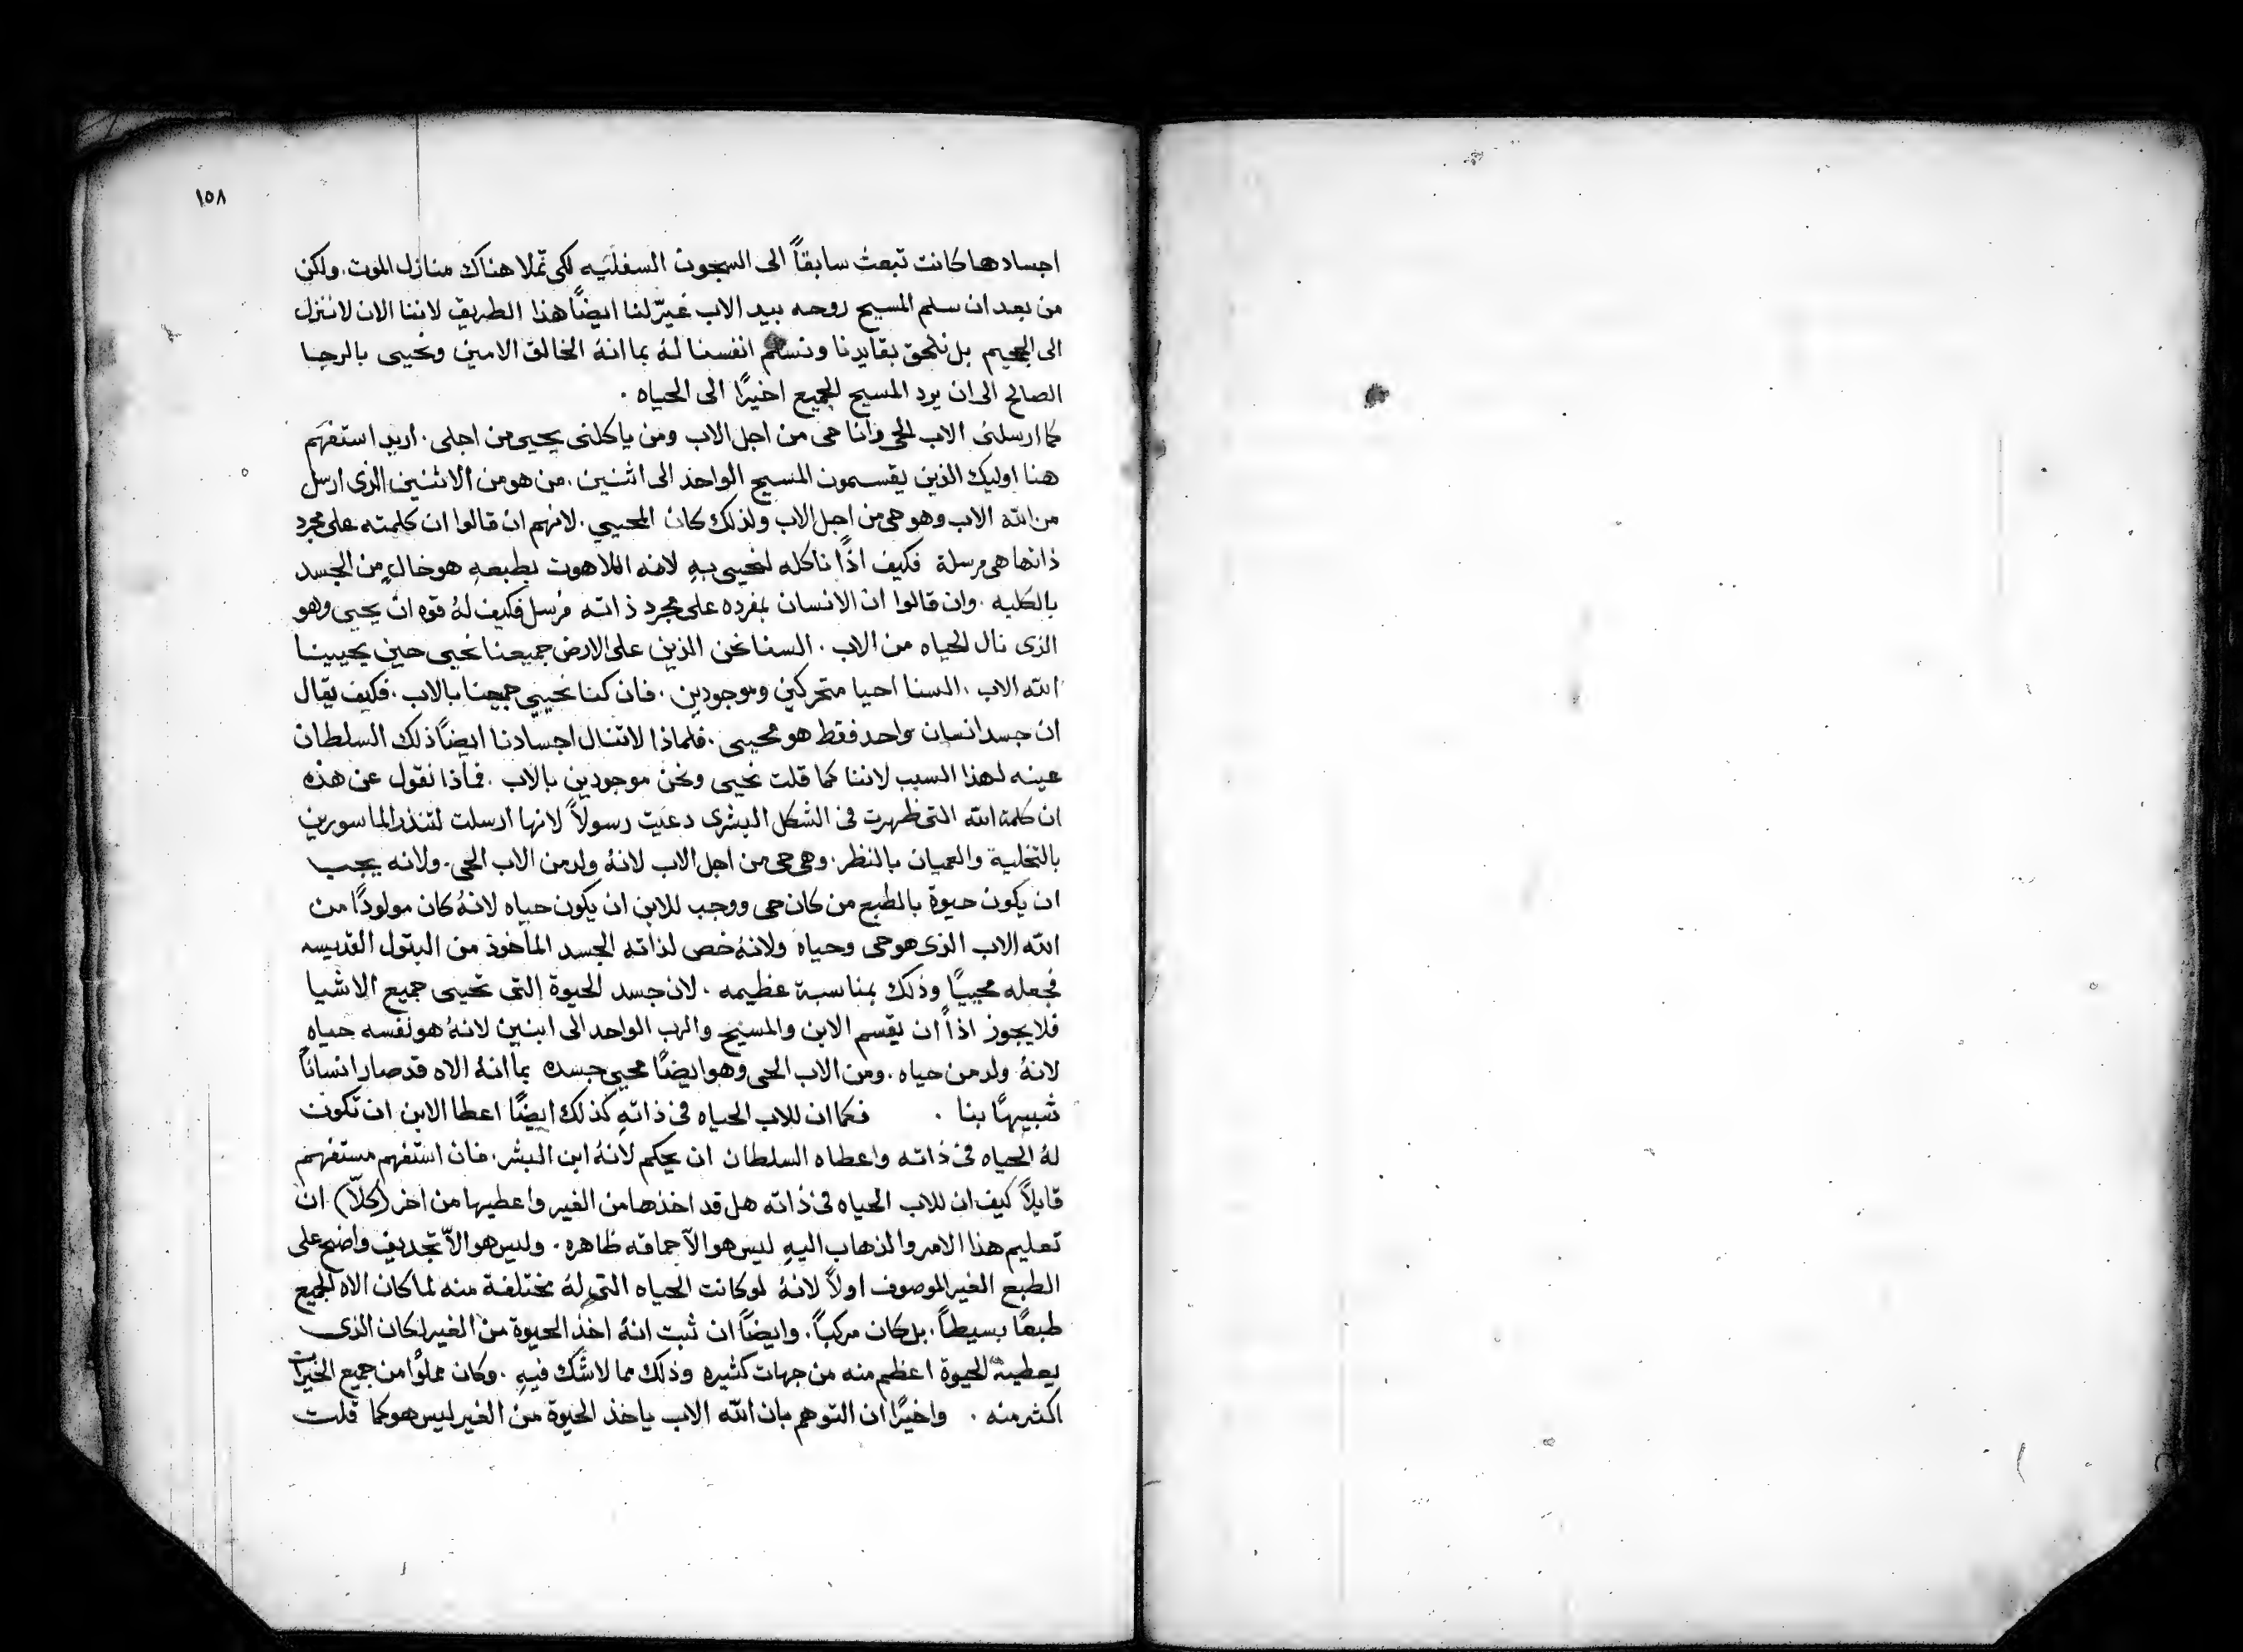 ١٥٨
اجسادها كانت تبعث سابقاً الى السجون السفليه لكى تملا هناك منازل الموت. ولكن
من بعد ان سلم المسيح روحه بيد الاب غيّر لنا ايضاً هذا الطريق لاننا الان لا ننزل
الى الجحيم بل نلحق بقايدنا ونسلم انفسنا لهُ بما انهُ الخالق الامين ونحيى بالرجا
الصالح الى ان يرد المسيح الجميع اخيرًا الى الحياه .
كما ارسلنى الاب الحى وانا حى من اجل الاب ومن ياكلنى يحيى من اجلى . اريد استفهم
هنا اوليك الذين يقسمون المسيح الواحد الى اثنين . من هو من الاثنين الذى ارسل
من الله الاب وهو حى من اجل الاب ولذلك كان المحيي . لانهم ان قالوا ان كلمته على مجرد
ذاتها هى مرسلة فكيف اذًا ناكله لنحيى بهِ لانه اللاهوت بطبعهِ هو خالٍ من الجسد
بالكليه . وان قالوا ان الانسان بمفرده على مجرد ذاته مُرسل فكيف لهُ قوه ان يحيى وهو
الذى نال الحياه من الاب . السنا نحن الذين على الارض جميعنا نحيى حين يحيينا
الله الاب . السنا احيا متحركين وموجودين . فان كنا نحيي جميعنا بالاب . فكيف يقال
ان جسد انسان واحد فقط هو محيى . فلماذا لا تنال اجسادنا ايضاً ذلك السلطان
عينه لهذا السبب لاننا كما قلت نحيى ونحن موجودين بالاب . فماذا نقول عن هذه
ان كلمة الله التى ظهرت فى الشكل البشرى دعيت رسولاً لانها ارسلت لتنذر الماسورين
بالتخلية والعميان بالنظر . وهى حى من اجل الاب لانهُ ولد من الاب الحى . ولانه يجب
ان يكون حيوة بالطبع من كان حى ووجب للابن ان يكون حياه لانهُ كان مولودًا من
الله الاب الذى هو حى وحياه ولانهُ خص لذاته الجسد الماخوذ من البتول القديسه
فجعله محييًا وذلك بمناسبة عظيمه . لان جسد الحيوة التى تحيى جميع الاشيا
فلا يجوز اذاً ان يقسم الابن والمسيح والرب الواحد الى ابنين لانهُ هو نفسه حياه
لانهُ ولد من حياه . ومن الاب الحى وهو ايضًا محيي جسده بما انهُ الاه قد صار انسانًا
شبيهًا بنا . فكما ان للاب الحياه فى ذاتهِ كذلك ايضًا اعطا الابن ان تكون
لهُ الحياه فى ذاته واعطاه السلطان ان يحكم لانهُ ابن البشر . فان استفهم مستفهم
قايلاً كيف ان للاب الحياه فى ذاته هل قد اخذها من الغير واعطيها من اخر (كلّا) ان
تعليم هذا الامر والذهاب اليهِ ليس هو الّا حماقه ظاهره . وليس هو الّا تجديف واضح على
الطبع الغير الموصوف اولاً لانهُ لو كانت الحياه التى لهُ مختلفة منه لما كان الاه الجميع
طبعًا بسيطاً . بل كان مركباً . وايضاً ان ثبت انهُ اخذ الحيوة من الغير لكان الذى
يعطيهُ الحيوة اعظم منه من جهات كثيره وذلك مما لا شك فيهِ . وكان مملوًا من جميع الخيرات
اكثر منه . واخيرًا ان التوهم بان الله الاب ياخذ الحيوة من الغير ليس هو كما قلت